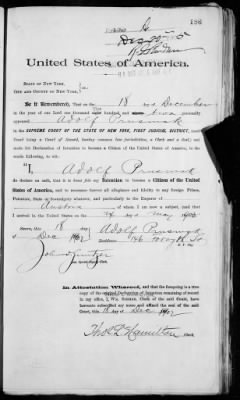 186
United States of America.
STATE OF NEW YORK,
CITY AND COUNTY OF NEW YORK, } ss.
Be it Remembered, That on the 18 day of December
in the year of our Lord one thousand hundred and two personally
appeared Adolf
in the SUPREME COURT OF THE STATE OF NEW YORK, FIRST JUDICIAL DISTRICT, (said
Court being a Court of Record, having common law jurisdiction, a Clerk and a Seal) and
made his Declaration of Intention to become a Citizen of the United States of America, in the
words following, to wit:
I, Adolf
do declare on oath, that it is bona fide my Intention to become a Citizen of the United
States of America, and to renounce forever all allegiance and fidelity to any foreign Prince,
Potentate, State or Sovereignty whatever, and particularly to the Emperor of
Austria of whom I am a subject, and that
I arrived in the United States on the 24 day of May
Sworn, this 18 day Adolf
of Dec 1902 Residence 146 Forsyth St
John
In Attestation Whereof, and that the foregoing is a true
copy of the original Declaration of Intention remaining of record
in my office, I, Clerk of the said Court, have
hereunto subscribed my name and affixed the seal of the said
Court, this 18 day of Dec 1902
Thos L Hamilton Clerk.